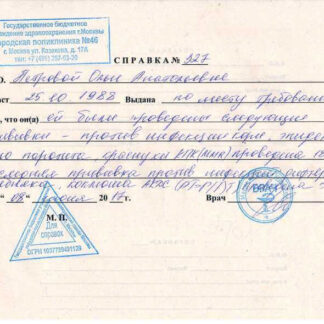 Государственное бюджетное
учреждение здравоохранения г.Москвы
городская поликлиника №46
г. Москва ул. Казакова, д. 17А
СПРАВКА № 327
О. Петровой Ольге Анатольевне
аст 25.10.1988 Выдана по месту требован
что он(а) ей были проведены следующие
прививки - против инфекции кори,
паротита, краснухи проведена
прививка против инфекций
коклюша АКДС
"08" 2017г. Врач
М. П.
Для
справок
ОГРН 1037739491129